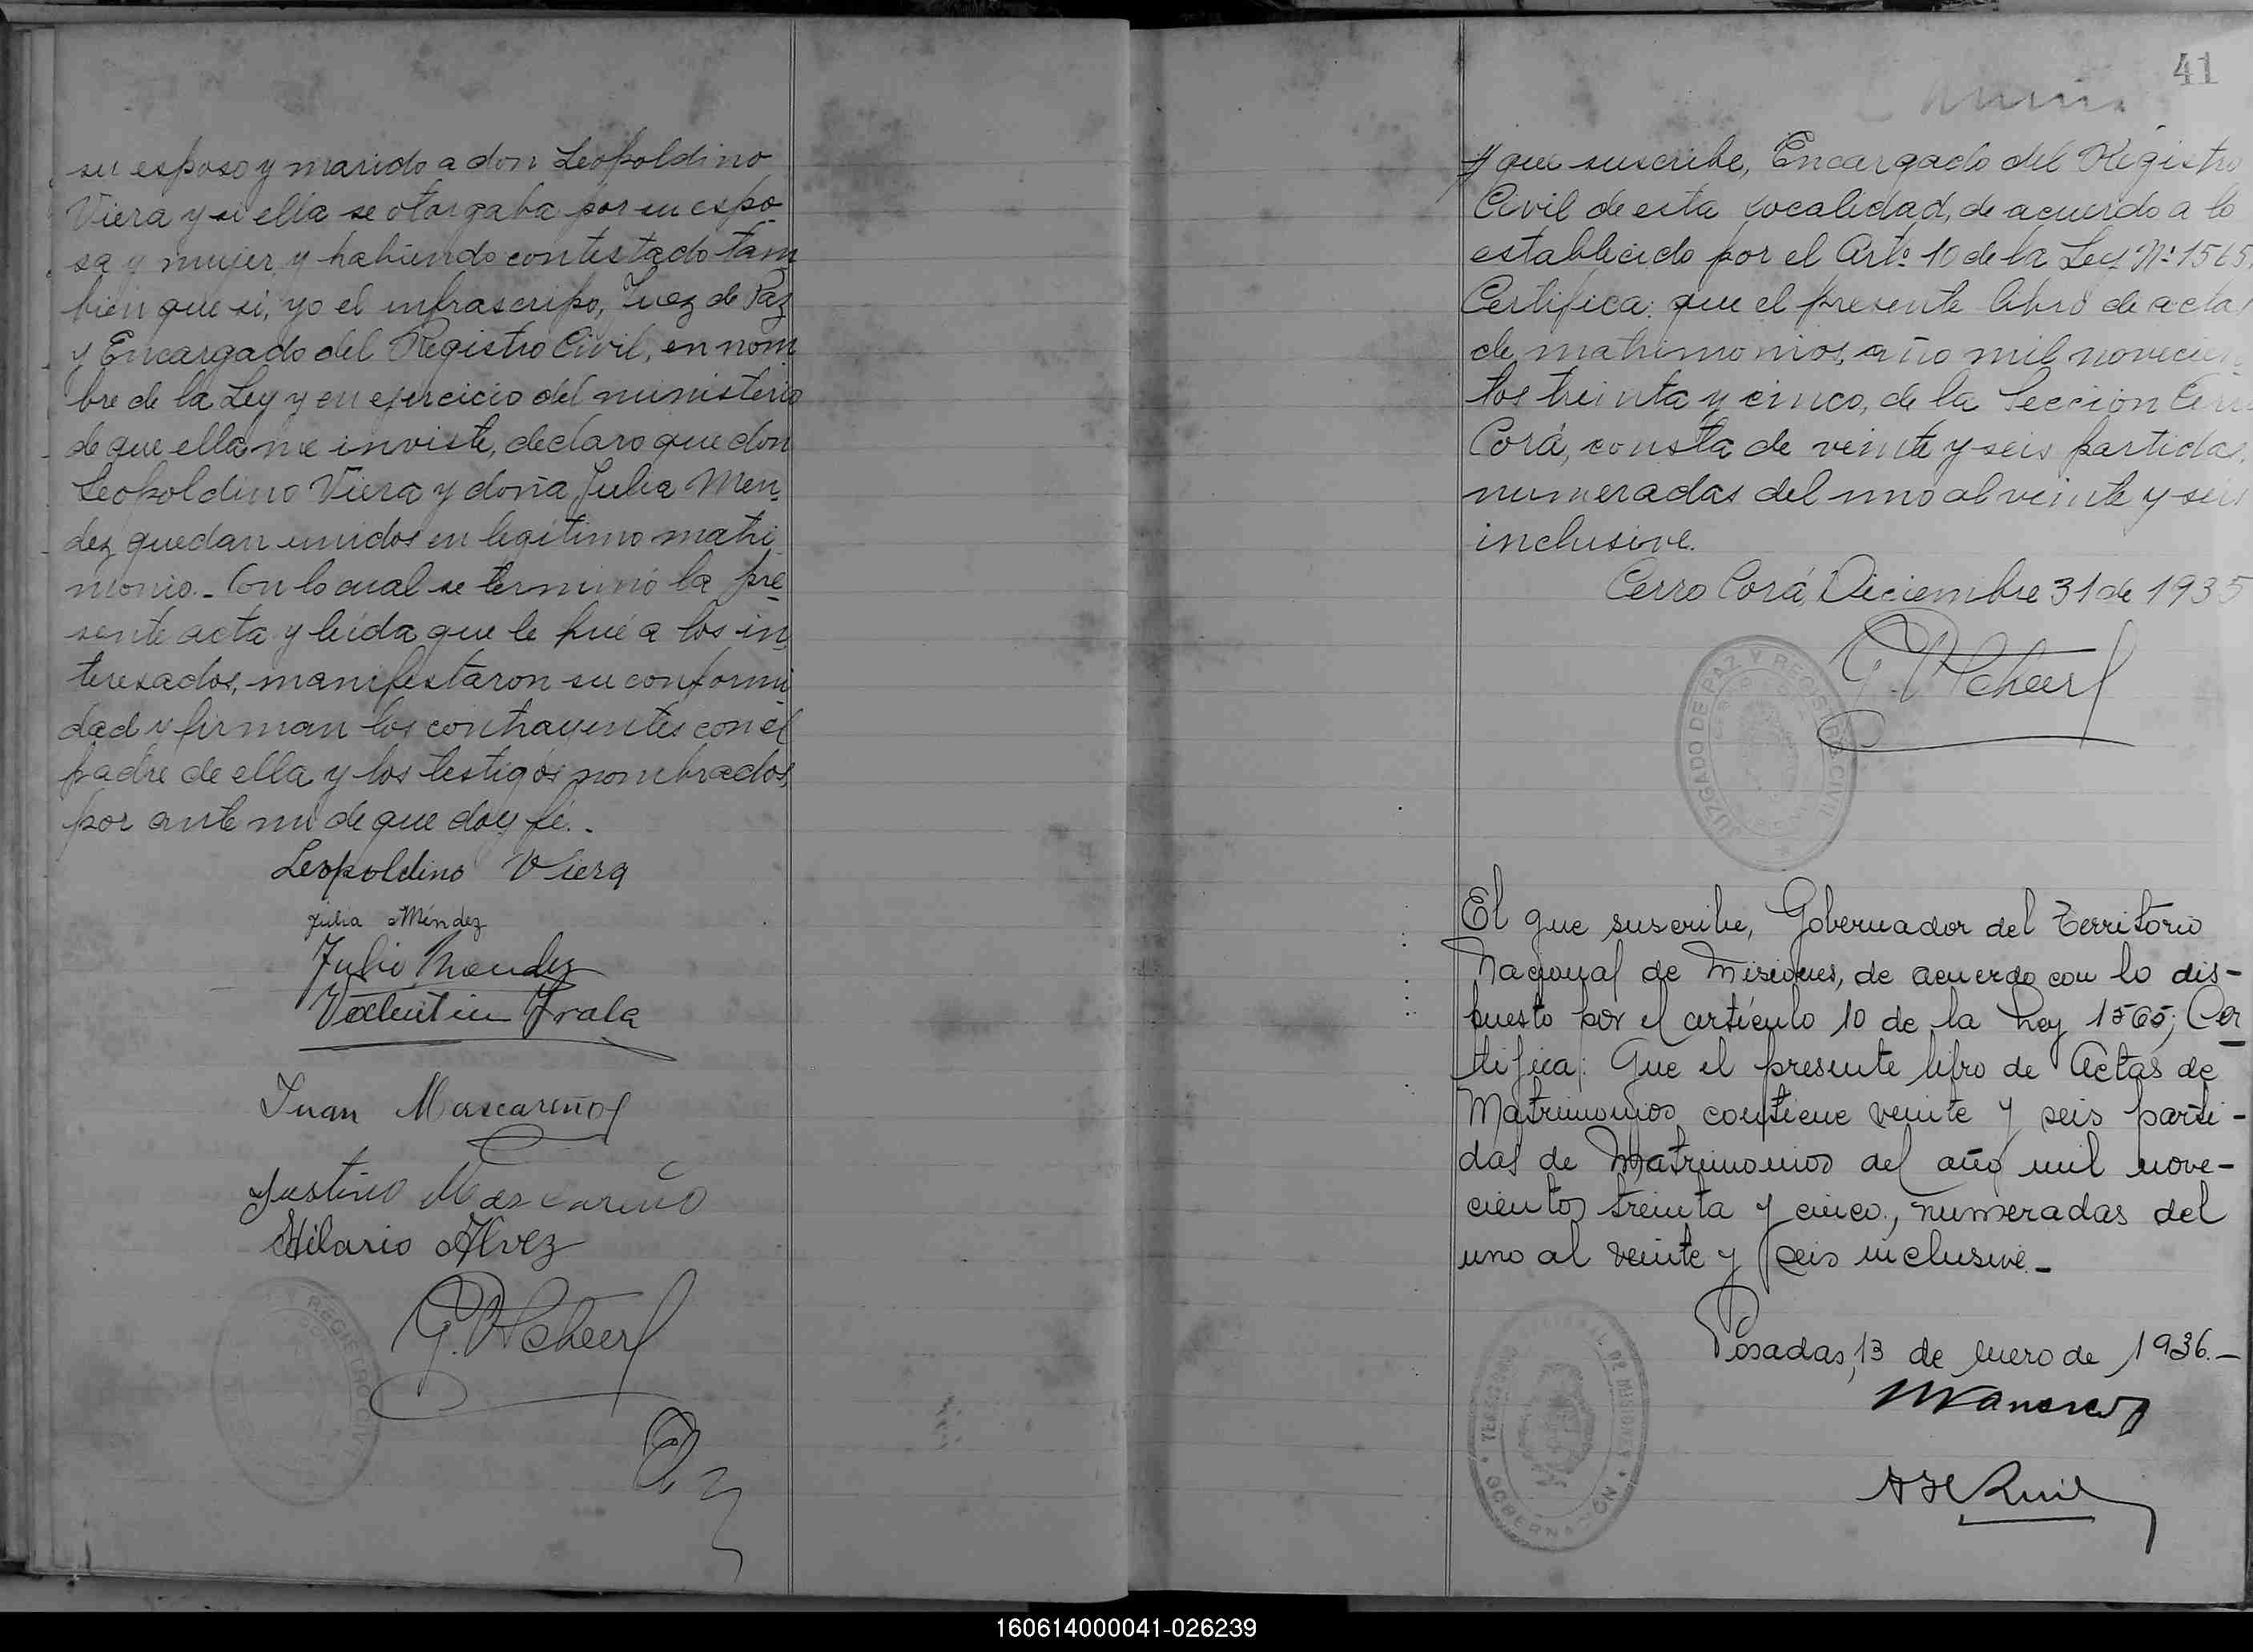 su esposo y marido a don Leopoldino
Viera y si ella se otorgaba por su espo-
sa y mujer, y habiendo contestado tam
bien que si, yo el infrascripo, Juez de Paz
y Encargado del Registro Civil, en nom
bre de la Ley y en ejercicio del ministerio
de que ella me inviste, declaro que don
Leopoldino Viera y doña Julia Men-
dez quedan unidos en legítimo matri
monio. - Con lo cual se terminó la pre
sente acta y leída que le fué a los in
teresados, manifestaron su conformi
dad y firman los contrayentes con el
padre de ella y los testigos nombrados,
por ante mi de que doy fé. -
Leopoldino Viera
Julia Méndez
Julio Mendez
Valentin Irala
Juan Mascareño
Justino Mascareño
Hilario Alvez
G. Scheerl
REGISTRO CIVIL
41
que suscribe, Encargado del Registro
Civil de esta localidad, de acuerdo a lo
establecido por el Artº 10 de la Ley Nº 1565,
Certifica: que el presente libro de actas
de matrimonios, año mil novecien
tos treinta y cinco, de la Sección Cerro
Corá, consta de veinte y seis partidas,
numeradas del uno al veinte y seis
inclusive.
Cerro Corá, Diciembre 31 de 1935
G. Scheerl
JUZGADO DE PAZ Y REGISTRO CIVIL
El que suscribe, Gobernador del Territorio
Nacional de Misiones, de acuerdo con lo dis-
puesto por el artículo 10 de la Ley 1565; Cer
tifica: Que el presente libro de Actas de
Matrimonios contiene veinte y seis parti-
das de Matrimonios del año mil nove-
cientos treinta y cinco, numeradas del
uno al veinte y seis inclusive. -
Posadas, 13 de Enero de 1936. -
GOBERNACIÓN
160614000041-026239